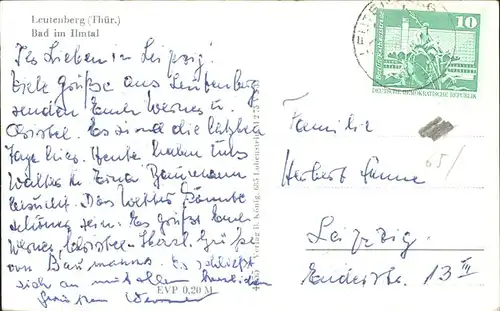 Leutenberg (Thür.)
Bad im Ilmtal
Ihr Lieben in Leipzig!
Viele Grüße aus Leutenberg
senden Euch Werner u.
Christel. Es sind die letzten
Tage hier. Heute haben uns
Walter u. Erna Baumann
besucht. Das Wetter könnte
schöner sein. Es grüßt Euch
Werner, Christel - Herzl. Grüße
von Baumanns. Es schließt
sich an mit allen herzlichen
Grüßen Werner
EVP 0,20 M
Verlag R. König, 685 Lobenstein
10
DEUTSCHE DEMOKRATISCHE REPUBLIK
Familie
65/
Herbert
Leipzig
13 II